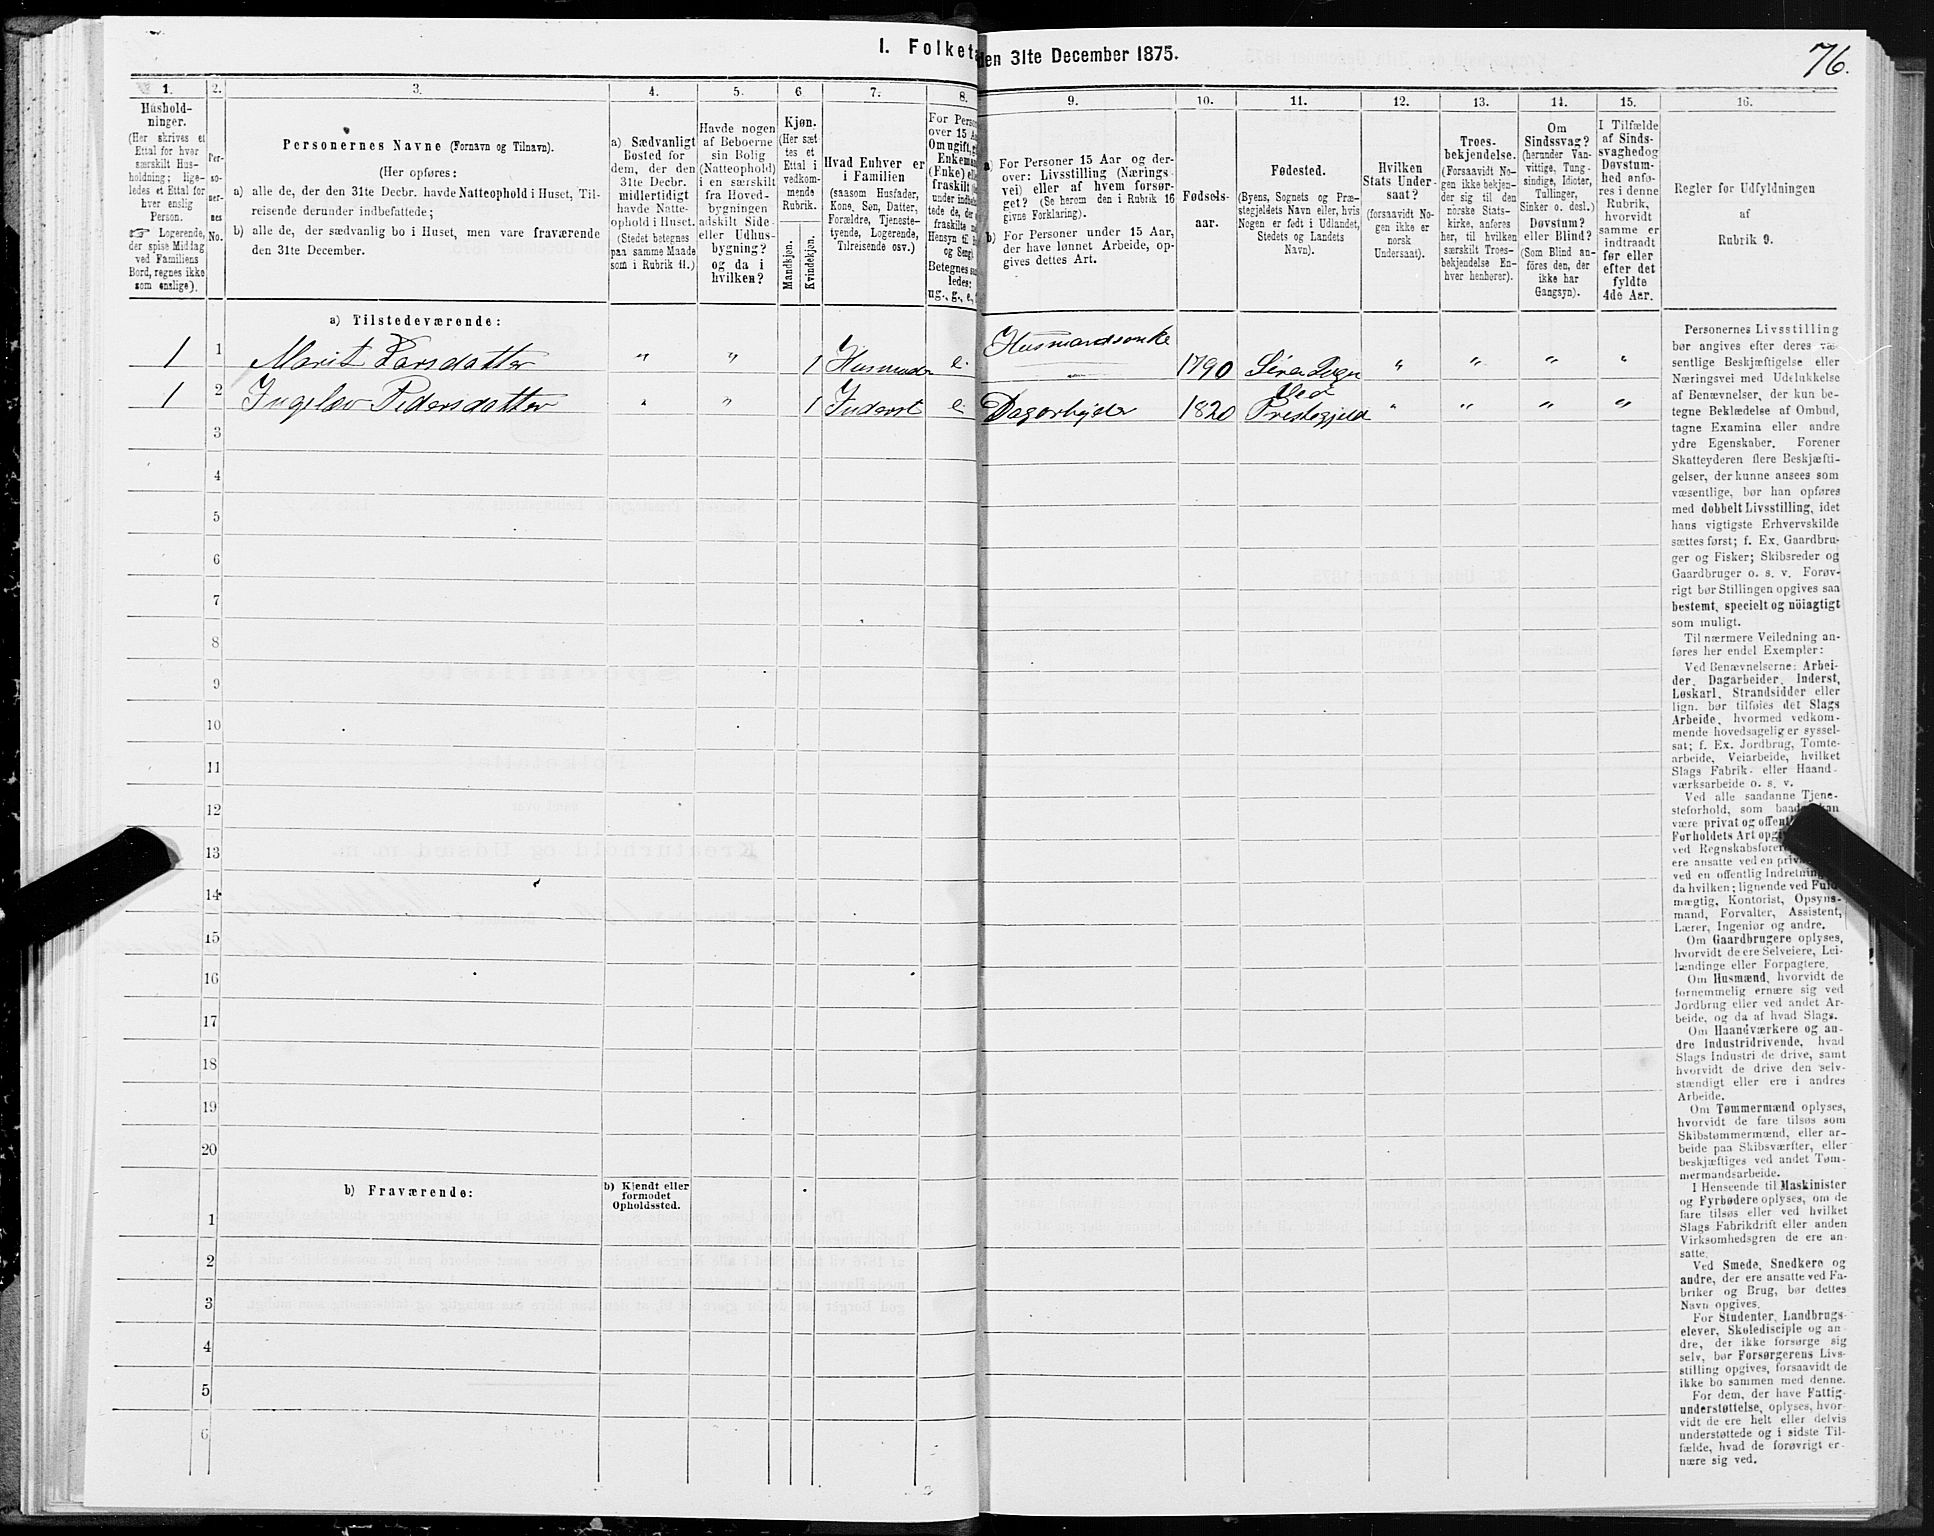 I. Folketa
den 31te December 1875.
76.
1.
2.
3.
4.
5.
6
7.
8.
9.
10.
11.
12.
13.
14.
15.
16.
Hushold-
ninger.
(Her skrives et
Ettal for hver
særskilt Hus-
holdning; lige-
ledes et Ettal for
hver enslig
Person.
☞ Logerende,
der spise Middag
ved Familiens
Bord, regnes ikke
som enslige).
Per-
so-
ner-
nes
No.
Personernes Navne (Fornavn og Tilnavn).
(Her opføres:
a) alle de, der den 31te Decbr. havde Natteophold i Huset, Til-
reisende derunder indbefattede;
b) alle de, der sædvanlig bo i Huset, men vare fraværende
den 31te December.
a) Sædvanligt
Bosted for
dem, der den
31te Decbr.
midlertidigt
havde Natte-
ophold i Huset.
(Stedet betegnes
paa samme Maade
som i Rubrik 11.)
Havde nogen
af Beboerne
sin Bolig
(Natteophold)
i en særskilt
fra Hoved-
bygningen
adskilt Side-
eller Udhus-
bygning?
og da i
hvilken?
Kjøn.
(Her sæt
tes et
Ettal i
vedkom-
mende
Rubrik.
Mandkjøn.
Kvindekjøn.
Hvad Enhver er
i Familien
(saasom Husfader,
Kone, Søn, Datter,
Forældre, Tjeneste-
tyende, Logerende,
Tilreisende osv.)
For Perso
over 15 Aa
Om ugift, g
Enkeman
(Enke) elle
fraskilt
under indbe
tede de, der
fraskilte
Hensyn til
og Seng).
Betegnes saa
ledes:
ug., g., e.,
a) For Personer 15 Aar og der-
over: Livsstilling (Nærings-
vei) eller af hvem forsør-
get? (Se herom den i Rubrik 16
givne Forklaring).
b) For Personer under 15 Aar,
der have lønnet Arbeide, op-
gives dettes Art.
Fødsels-
aar.
Fødested.
(Byens, Sognets og Præ-
stegjeldets Navn eller, hvis
Nogen er født i Udlandet,
Stedets og Landets
Navn).
Hvilken
Stats Under-
saat?
(forsaavidt No-
gen ikke er
norsk
Undersaat).
Troes-
bekjendelse.
(Forsaavidt No-
gen ikke bekjen-
der sig til den
norske Stats-
kirke, anføres
her, til hvilken
særskilt Troes-
bekjendelse En-
hver henhører).
Om
Sindssvag?
(herunder Van-
vittige, Tung-
sindige, Idioter,
Tullinger,
Sinker o. desl.)
Døvstum?
eller Blind?
(Som Blind an-
føres den, der
ikke har
Gangsyn).
I Tilfælde
af Sinds-
svaghed og
Døvstum-
hed anfø-
res i denne
Rubrik,
hvorvidt
samme er
indtraadt
før eller
efter det
fyldte
4de Aar.
Regler for Udfyldningen
af
Rubrik 9.
a) Tilstedeværende:
1 1 Marit Larsdatter " " 1 Husmoder e. Husmandsenke 1790 " " " "
1 2 Ingelev Pedersdatter " " 1 Inderst e. Dagarbejder 1820 Prestegjeld " " " "
3
4
5
6
7
8
9
10
11
12
13
14
15
16
17
18
19
20
b) Fraværende:
b) Kjendt eller
formodet
Opholdssted.
1
2
3
4
5
6
Personernes Livsstilling
bør angives efter deres væ-
sentlige Beskjæftigelse eller
Næringsvei med Udelukkelse
af Benævnelser, der kun be-
tegne Beklædelse af Ombud,
tagne Examina eller andre
ydre Egenskaber. Forener
Skatteyderen flere Beskjæfti-
gelser, der kunne ansees som
væsentlige, bør han opføres
med dobbelt Livsstilling, idet
hans vigtigste Erhvervskilde
sættes først; f. Ex. Gaardbru-
ger og Fisker; Skibsreder og
Gaardbruger o. s. v. Forøv-
rigt bør Stillingen opgives saa
bestemt, specielt og nøiagtigt
som muligt.
Til nærmere Veiledning an-
føres her endel Exempler:
Ved Benævnelserne: Arbei-
der, Dagarbeider, Inderst,
Løskarl, Strandsidder eller
lign. bør tilføies det Slags
Arbeide, hvormed vedkom-
mende hovedsagelig er syssel-
sat; f. Ex. Jordbrug, Tomte-
arbeide, Veiarbeide, hvilket
Slags Fabrik- eller Haand-
værksarbeide o. s. v.
Ved alle saadanne Tjene-
steforhold, som baade kan
være privat og offentl
Forholdets Art opgi
ved Regnskabsføre
ere ansatte ved en priv
ved en offentlig Indretning
da hvilken; lignende ved Fuld-
mægtig, Kontorist, Opsyns-
mand, Forvalter, Assistent,
Lærer, Ingeniør og andre.
Om Gaardbrugere oplyses,
hvorvidt de ere Selveiere, Lei-
lændinge eller Forpagtere.
Om Husmænd, hvorvidt de
fornemmelig ernære sig ved
Jordbrug eller ved andet Ar-
beide, og da af hvad Slags.
Om Haandværkere og an-
dre Industridrivende, hvad
Slags Industri de drive, samt
hvorvidt de drive den selv-
stændigt eller ere i andres
Arbeide.
Om Tømmermænd oplyses,
hvorvidt de fare tilsøs som
Skibstømmermænd, eller ar-
beide paa Skibsværfter, eller
beskjæftiges ved andet Tøm-
mermandsarbeide.
I Henseende til Maskinister
og Fyrbødere oplyses, om de
fare tilsøs eller ved hvilket
Slags Fabrikdrift eller anden
Virksomhedsgren de ere an-
satte.
Ved Smede, Snedkere og
andre, der ere ansatte ved Fa-
briker og Brug, bør dettes
Navn opgives.
For Studenter, Landbrugs-
elever, Skoledisciple og an-
dre, der ikke forsørge sig
selv, bør Forsørgerens Livs-
stilling opgives, forsaavidt de
ikke bo sammen med denne.
For dem, der have Fattig-
understøttelse, oplyses, hvor-
vidt de ere helt eller delvis
understøttede og i sidste Til-
fælde, hvad de forøvrigt er-
nære sig ved.